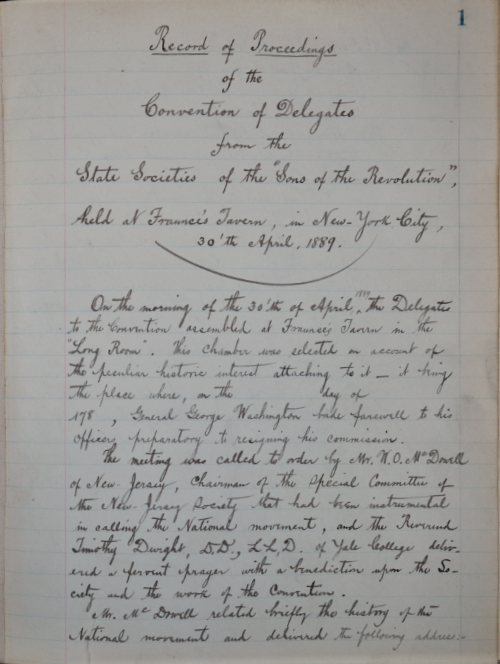 1
Record of Proceedings
of the
Convention of Delegates
from the
State Societies of the "Sons of the Revolution",
held at Fraunce's Tavern, in New-York City,
30'th April, 1889.
On the morning of the 30'th of April, 1889 the Delegates
to the Convention assembled at Fraunce's Tavern in the
"Long Room". This chamber was selected on account of
the peculiar historic interest attaching to it — it being
the place where, on the day of
178 , General George Washington bade farewell to his
Officers preparatory to resigning his commission.
The meeting was called to order by Mr. W. O. McDowell
of New Jersey, Chairman of the Special Committee of
the New Jersey Society that had been instrumental
in calling the National movement, and the Reverend
Timothy Dwight, D.D., L.L.D. of Yale College deliv-
ered a fervent prayer with a benediction upon the So-
ciety and the work of the Convention.
Mr. McDowell related briefly the history of the
National movement and delivered the following address:-